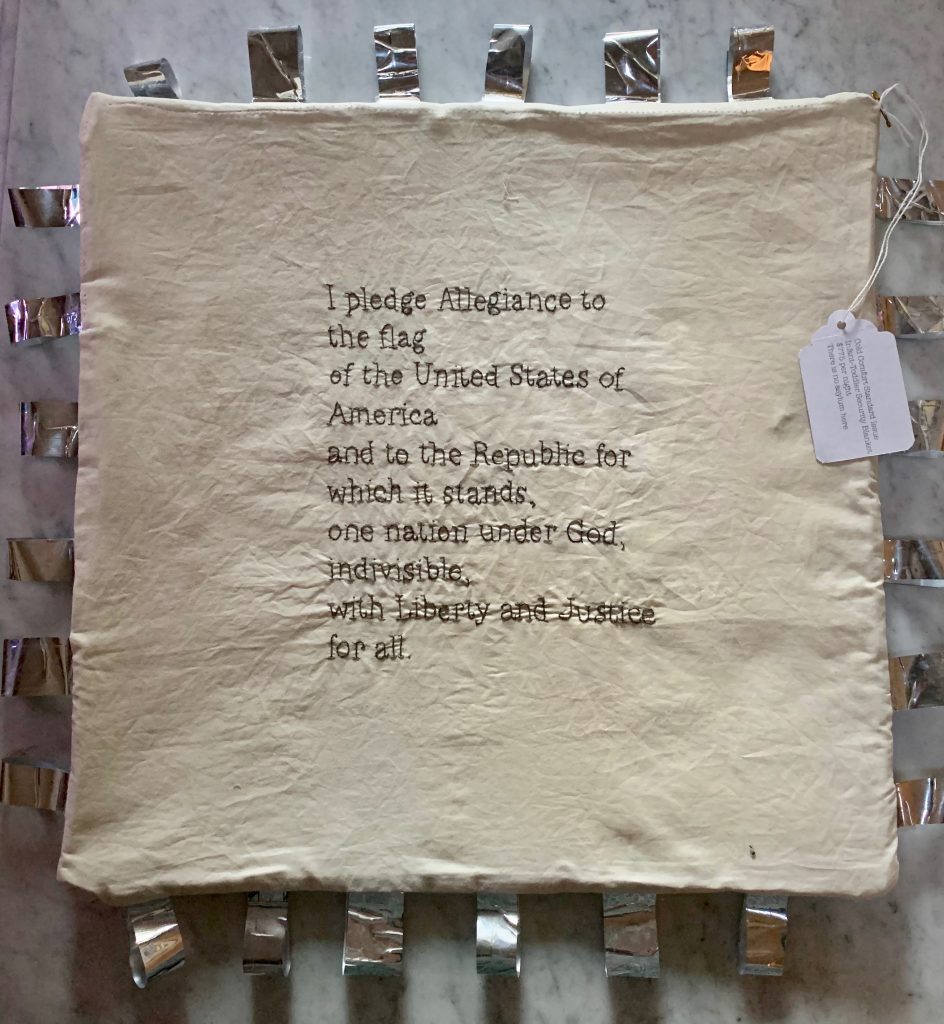 I pledge Allegiance to
the flag
of the United States of
America
and to the Republic for
which it stands,
one nation under God,
indivisible,
with Liberty and Justice
for all.
Cold Comfort Standard issue
Infant-Toddler Security Blanket
$775 per night
There is no asylum here